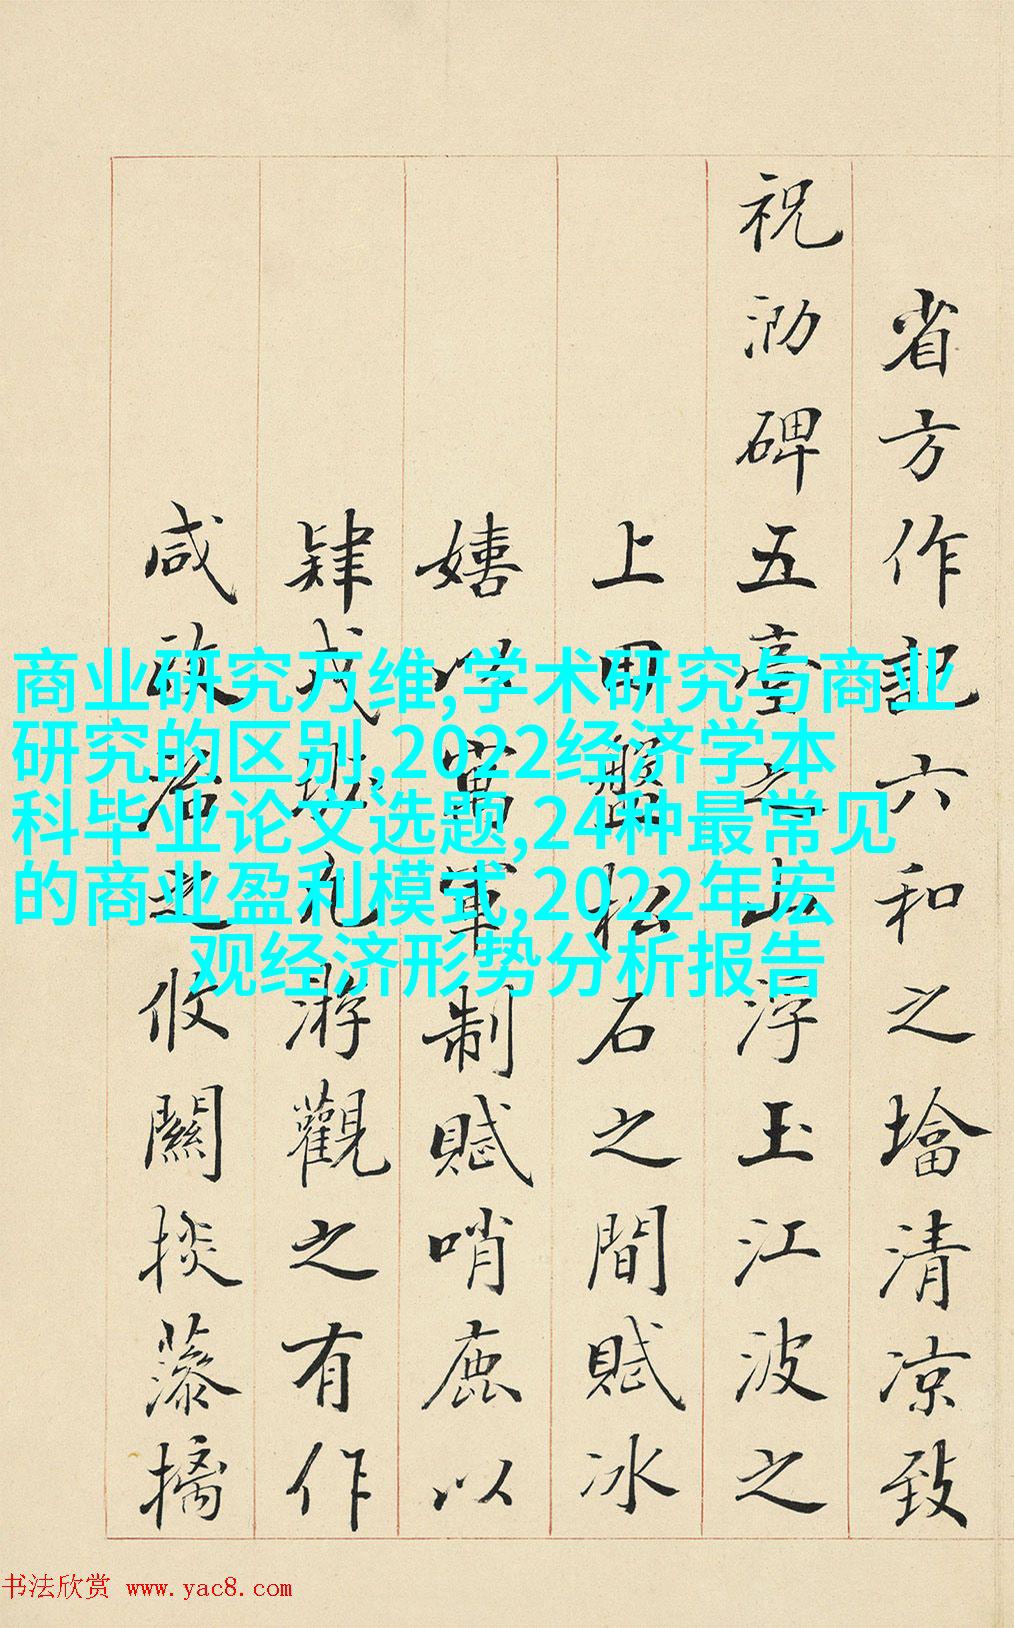 商业研究万维,学术研究与商业
研究的区别,2022经济学本
科毕业论文选题,24种最常见
的商业盈利模式,2022年宏
观经济形势分析报告
省方作記六和之墖清凉致
祝泐碑五臺之山浮玉江波之
上田盤松石之間賦冰
嬉以寓軍制賦哨鹿以
肄戎凡游觀之有作
咸政是攸關掞藻摛
书法欣赏 www.yac8.com